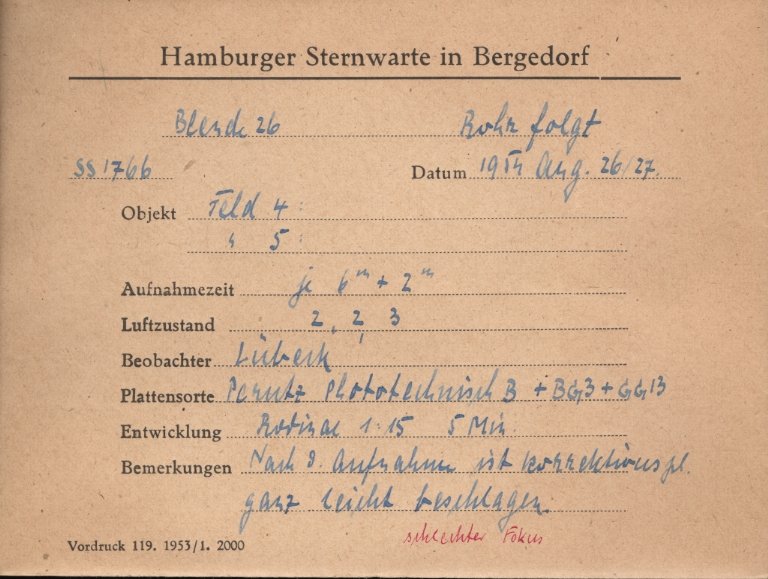 Hamburger Sternwarte in Bergedorf
Blende 26 Rohr folgt
SS 1766 Datum 1954 Aug. 26/27.
Objekt Feld 4:
" 5:
Aufnahmezeit je 6m + 2m
Luftzustand 2, 2, 3
Beobachter Lübeck
Plattensorte Perutz Phototechnisch B + BG3 + GG13
Entwicklung Rodinal 1:15 5 Min.
Bemerkungen Nach d. Aufnahme ist Korrektionspl.
ganz leicht beschlagen.
schlechter Fokus
Vordruck 119. 1953/1. 2000